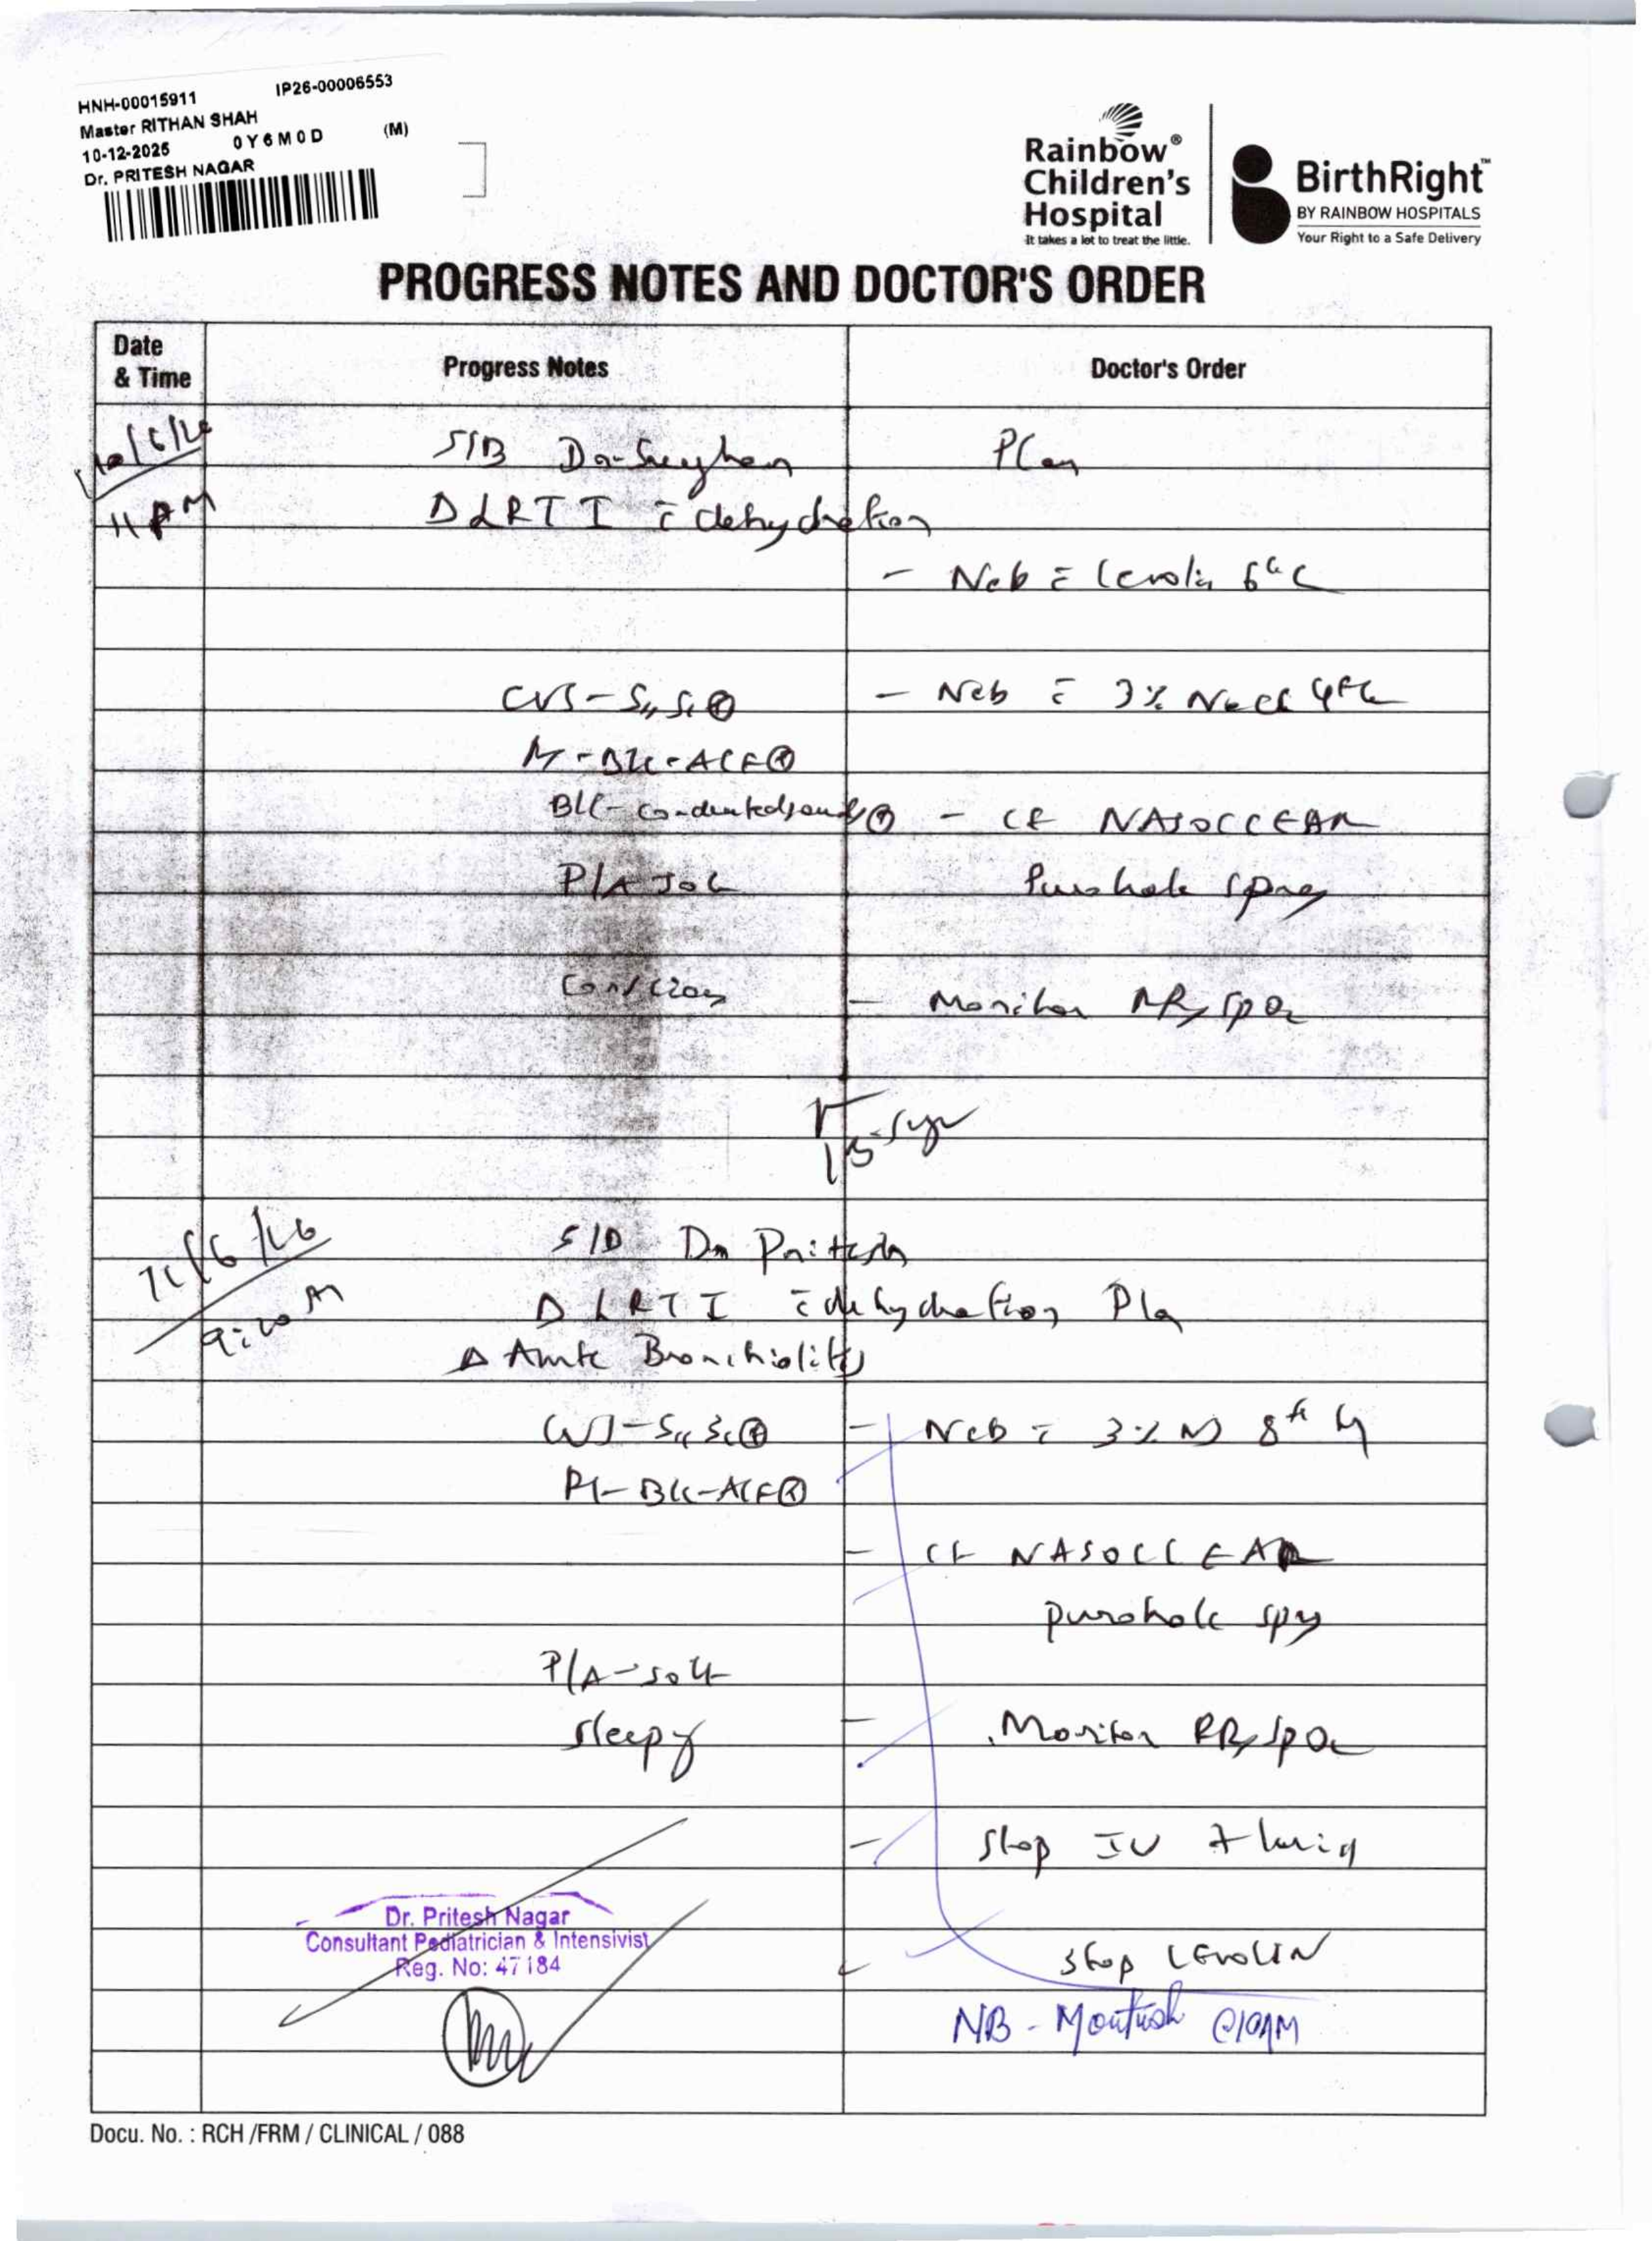 HNH-00015911 IP26-00006553
Master RITHAN SHAH
10-12-2025 0Y6M0D (M)
Dr. PRITESH NAGAR
Rainbow®
Children's
Hospital
It takes a lot to treat the little.
BirthRight™
BY RAINBOW HOSPITALS
Your Right to a Safe Delivery
PROGRESS NOTES AND DOCTOR'S ORDER
Date
& Time
Progress Notes Doctor's Order
10/6/26 S/B Plan
11 PM Δ LRTI c̄ dehydration
- Neb c̄ Levolin 6th
CVS - S₁, S₂ ⊕ - Neb c̄ 3% Nacl 4th
BLC - conducted sounds ⊕ - CF NASOCLEAR
P/A Soft Purohale spray
Conscious - Monitor RR, SpO₂
11/6/26 S/B Dr Pritesh
9:20 AM Δ LRTI c̄ dehydration Plan
Δ Acute Bronchiolitis
CVS - S₁, S₂ ⊕ - Neb c̄ 3% NS 8th
- CF NASOCLEAR
purohale spray
P/A - soft
sleepy - Monitor RR, SpO₂
- Stop IV fluid
Dr. Pritesh Nagar
Consultant Pediatrician & Intensivist
Reg. No: 47184
- Stop LEVOLIN
NB - @10AM
Docu. No. : RCH /FRM / CLINICAL / 088